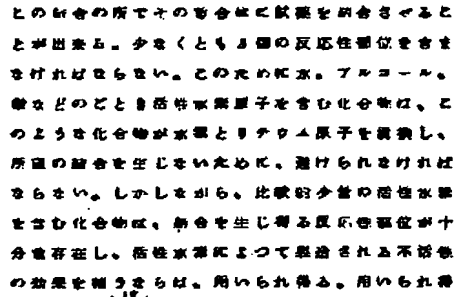 との結合の所でその重合体に試薬を結合させるこ
とが出来る。少なくとも1個の反応性部位を含ま
なければならない。このために水、アルコール、
酸などのごとき活性水素原子を含む化合物は、こ
のような化合物が水素とリチウム原子を置換し、
所望の結合を生じないために、避けられなければ
ならない。しかしながら、比較的少量の活性水素
を含む化合物は、結合を生じ得る反応性部位が十
分量存在し、活性水素によつて製造される不活性
の効果を補うならば、用いられ得る。用いられ得